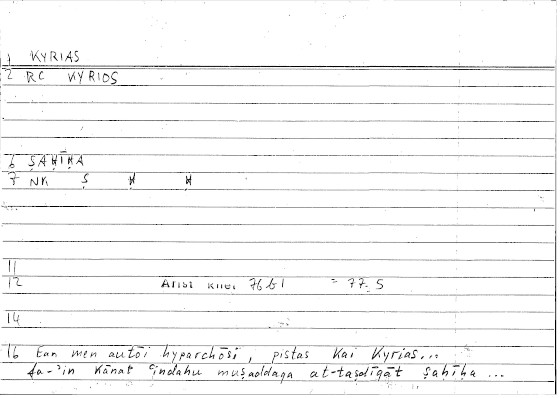 1 KYRIAS
2 RC KYRIOS
6 ṢAḤĪḤA
7 NK Ṣ Ḥ Ḥ
11
12 Arist Rhet 76b1 = 77.5
14
16 Ean men autōi hyparchōsi, pistas kai kyrias...
fa-'in kānat ʿindahu muṣaddaqa at-taṣdīqāt ṣaḥīḥa ...